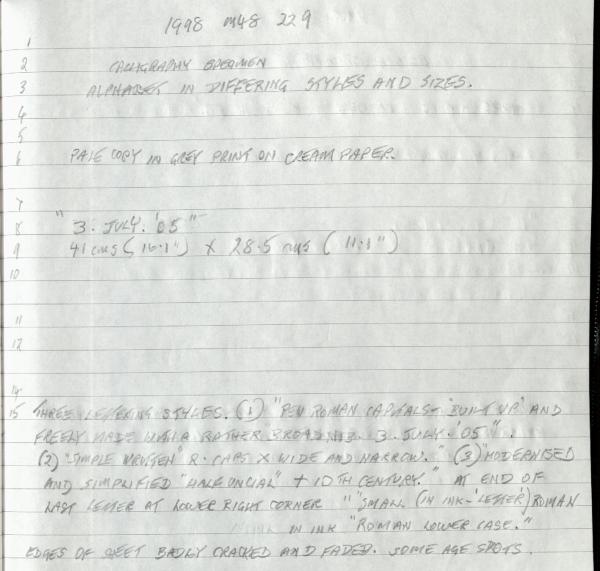 1998 M48 229
1
2 CALLIGRAPHY SPECIMEN
3 ALPHABET IN DIFFERING STYLES AND SIZES.
4
5
6 PALE COPY IN GREY PRINT ON CREAM PAPER.
7
8 " 3. JULY. '05 "
9 41 cms (16.1") X 28.5 cms (11.1")
10
11
12
14
15 THREE LETTERING STYLES. (1) "PEN ROMAN CAPITALS - 'BUILT UP' AND
FREELY MADE WITH A RATHER BROAD NIB. 3. JULY. '05".
(2) "SIMPLE WRITTEN" R. CAPS X WIDE AND NARROW. " (3) "MODERNISED
AND SIMPLIFIED "HALF UNCIAL" + 10TH CENTURY." AT END OF
LAST LETTER AT LOWER RIGHT CORNER " "SMALL (IN INK - 'LETTER') ROMAN
IN INK "ROMAN LOWER CASE."
EDGES OF SHEET BADLY CRACKED AND FADED. SOME AGE SPOTS.